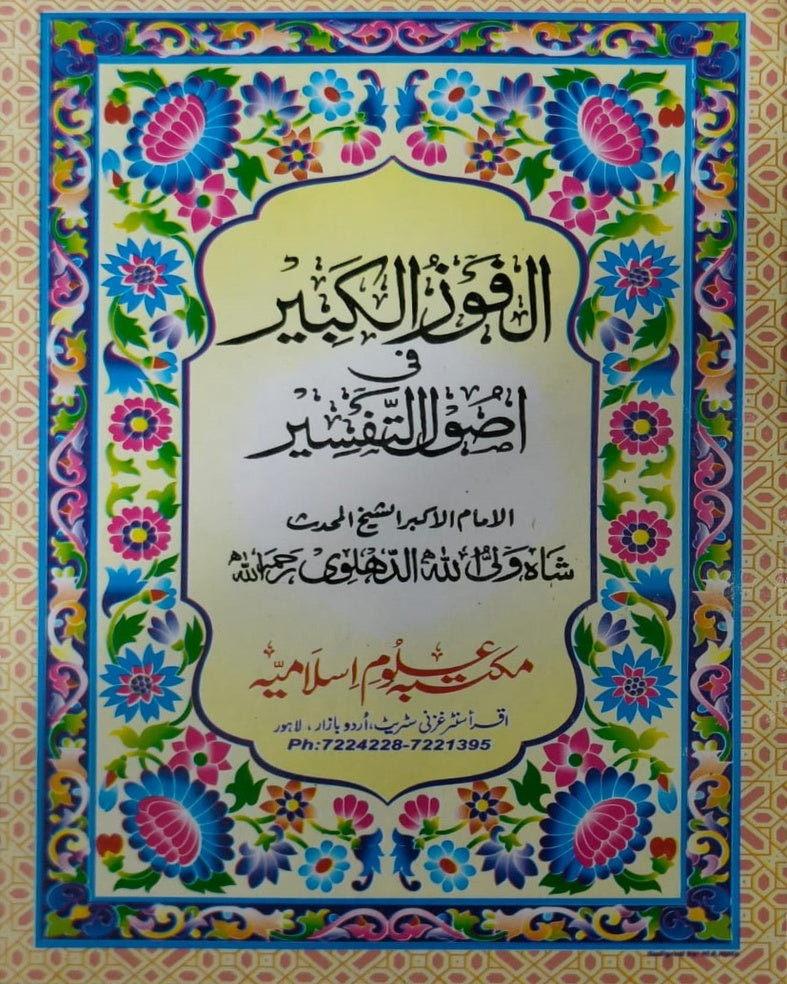 الفَوْزُ الكَبِير
فی
اصُولِ التَّفسِير
الامام الاکبر الشیخ المحدث
شاہ ولیُّ اللہ الدّھلوی رحمہ اللہ
مکتبہ علوم اسلامیہ
اقرأ سنٹر غزنی سٹریٹ، اُردو بازار، لاہور
Ph:7224228-7221395